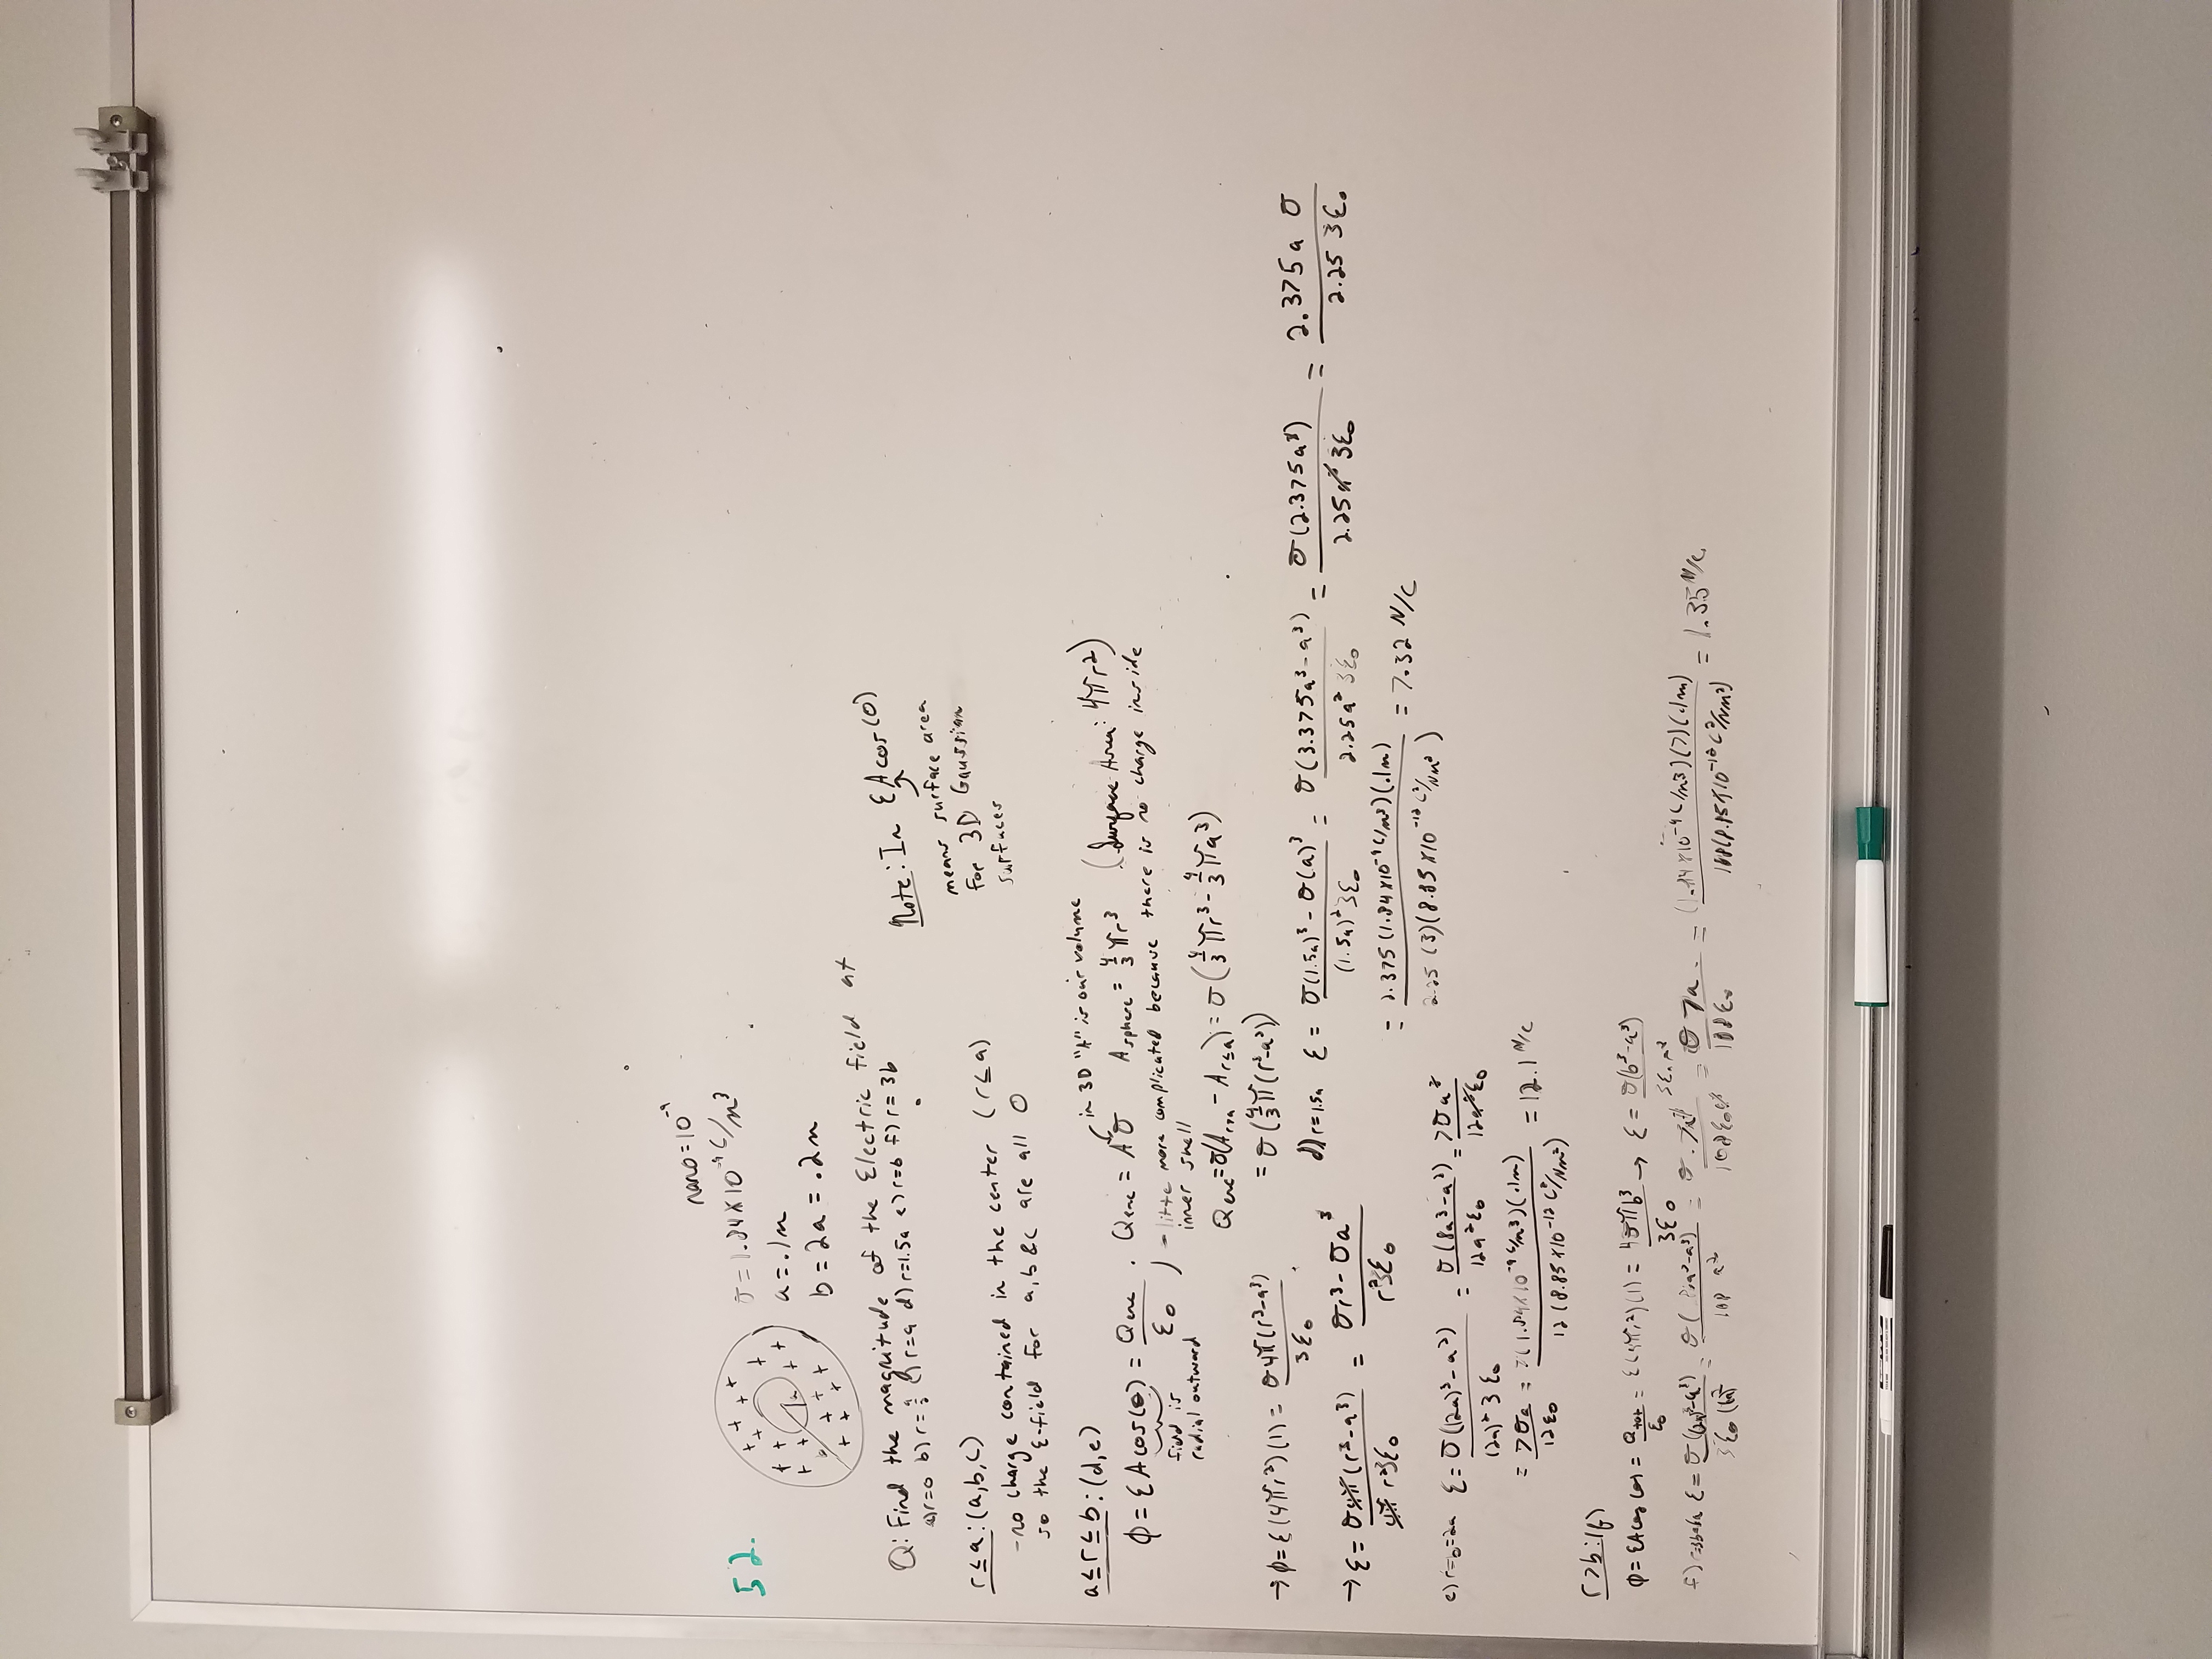 nano = 10^-9
52.
σ = 1.84 x 10^-9 C/m^3
a = .1m
b = 2a = .2m
a
b
Q: Find the magnitude of the Electric field at
a) r=0 b) r=a/2 c) r=a d) r=1.5a e) r=b f) r=3b
Note: In EAcos(0)
means surface area
for 3D Gaussian
surfaces
r≤a: (a,b,c)
- no charge contained in the center (r≤a)
so the E-field for a, b & c are all 0
a≤r≤b: (d,e)
in 3D "A" is our volume
ϕ = EAcos(θ) = Qenc/ε0 . Qenc = Aσ A sphere = 4/3 πr^3 (Surface Area: 4πr^2)
field is
radial outward
- litte more complicated because there is no charge inside
inner shell
Qenc = σ(A r>a - A r≤a) = σ(4/3 πr^3 - 4/3 πa^3)
= σ(4/3 π(r^3-a^3))
→ ϕ = E(4πr^2)(1) = σ4π(r^3-a^3)/3ε0 .
→ E = σ4π(r^3-a^3)/4π r^2 3ε0 = σr^3 - σa^3/r^2 3ε0
d) r=1.5a E = σ(1.5a)^3 - σ(a)^3/(1.5a)^2 3ε0 = σ(3.375a^3 - a^3)/2.25a^2 3ε0 = σ(2.375a^3)/2.25a^2 3ε0 = 2.375a σ/2.25 3ε0
= 2.375(1.84x10^-9 C/m^3)(.1m)/2.25(3)(8.85x10^-12 C^2/Nm^2) = 7.32 N/C
e) r=b=2a E = σ((2a)^3 - a^3)/(2a)^2 3ε0 = σ(8a^3 - a^3)/12a^2ε0 = 7σa^3/12a^2ε0
= 7σa/12ε0 = 7(1.84x10^-9 C/m^3)(.1m)/12(8.85x10^-12 C^2/Nm^2) = 12.1 N/C
r>b: (f)
ϕ = EAcos(0) = Qtot/ε0 = E(4πr^2)(1) = 4σπb^3/3ε0 → E = σ(b^3-a^3)/3ε0r^2
f) r=3b=6a E = σ((2a)^3-a^3)/3ε0(6a)^2 = σ(8a^3-a^3)/108 a^2 = σ.7a^3/108ε0a^2 = σ7a/108ε0 = (1.84x10^-9 C/m^3)(7)(.1m)/108(8.85x10^-12 C^2/Nm^2) = 1.35 N/C